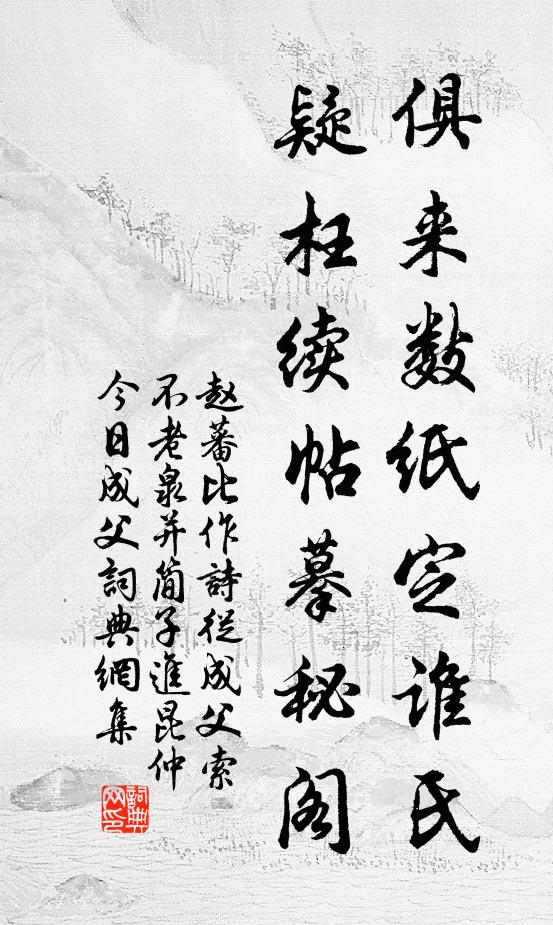 俱来数纸定谁氏
疑枉续帖摹秘阁
赵蕃比作詩從成父索
不老泉并简子進昆仲
今日成父詞典網集
詞典网印